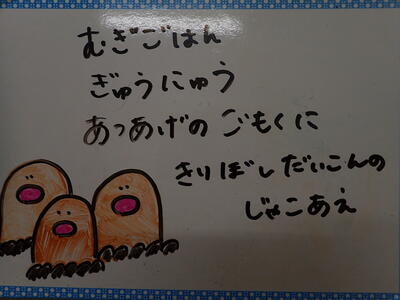 むぎごはん
ぎゅうにゅう
あつあげの ごもくに
きりぼしだいこんの
じゃこあえ